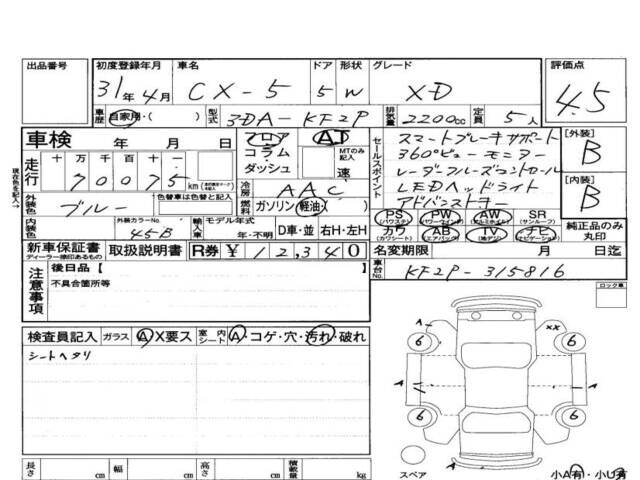 出品番号
初度登録年月 31年4月
車名 CX-5
ドア 5
形状 W
グレード XD
評価点 4.5
車歴 自家用・( )
型式 3DA-KF2P
排気量 2200cc
定員 5人
車検 年 月 日
フロア コラム・ダッシュ
AT
MTのみ記入 速
セールスポイント
スマートブレーキサポート
360°ビューモニター
レーダークルーズコントロール
LEDヘッドライト
アドバンストキー
[外装] B
[内装] B
走行 十 万 千 百 十
70075 km
冷房 AAC
外装色 ブルー
色替車は色替と記入
燃料 ガソリン 軽油・( )
PS (パワステ) PW (パワーウインド) AW (アルミホイル) SR (サンルーフ)
カワ (カワシート) AB (エアバック) TV (地デジ) ナビ (ナビゲーション)
純正品のみ丸印
内装色
外装カラーNo. 45B
輸入車 モデル年式 年・不明
D車・並 右H・左H
新車保証書 ディーラー捺印あるもの
取扱説明書
R券 ¥12,340
名変期限 月 日迄
車台No. KF2P-315816
注意事項
後日品【
不具合箇所等
ロック車
検査員記入 ガラス A X要ス
室内シート A・コゲ・穴・汚れ・破れ
シートヘタリ
A
XX
6 6
A A
6 6
A
スペア
長さ cm 幅 cm 高さ cm 積載量 kg
小A有・小U有
現在色を記入→